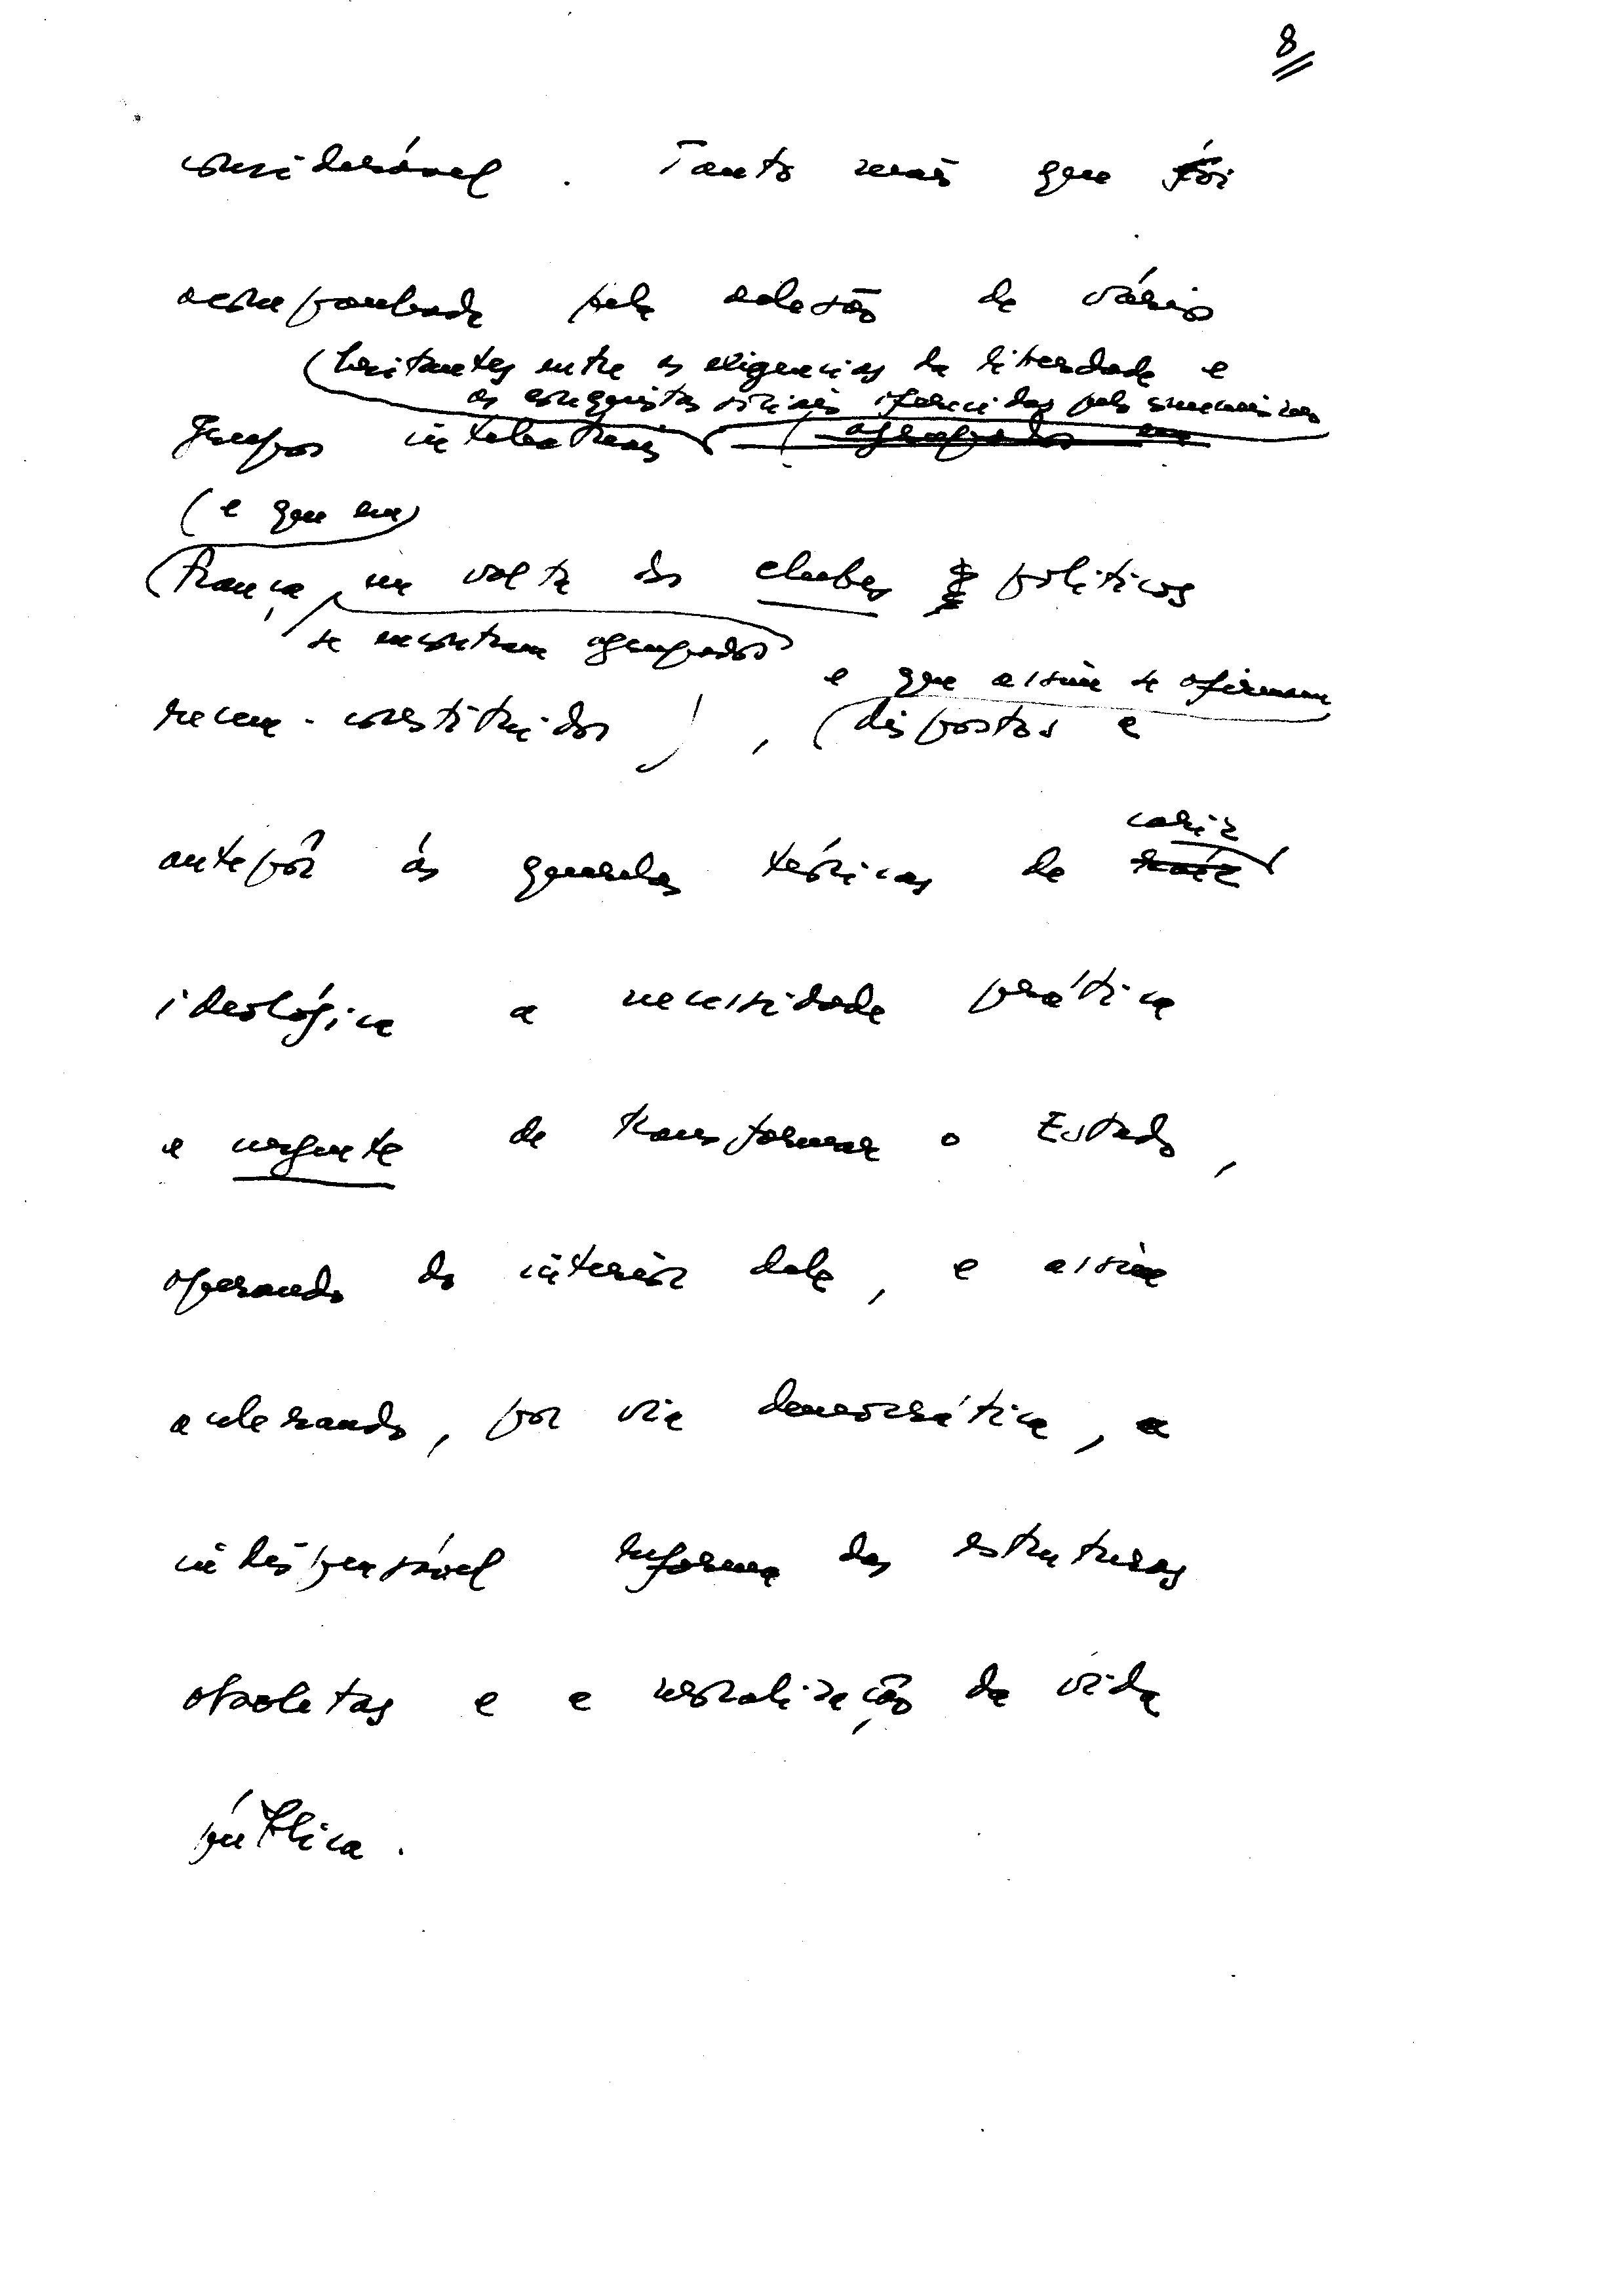 8
considerável. Tanto mais que foi
acompanhada pela adesão de vários
hesitantes entre as exigencias da liberdade e
as conquistas sociais oferecidas pelo comunismo
grupos intelectuais agrupados em
(e que em
França, em volta dos clubes políticos
se encontram agrupados
e que assim se afirmam
recem-constituidos), dispostos a
cariz
antepôr ás querelas teóricas de raíz
ideológica a necessidade prática
e urgente de transformar o Estado,
operando do interiór dele, e assim
acelerando, por via democrática, a
indispensável reforma das estruturas
obsoletas e a moralização da vida
pública.